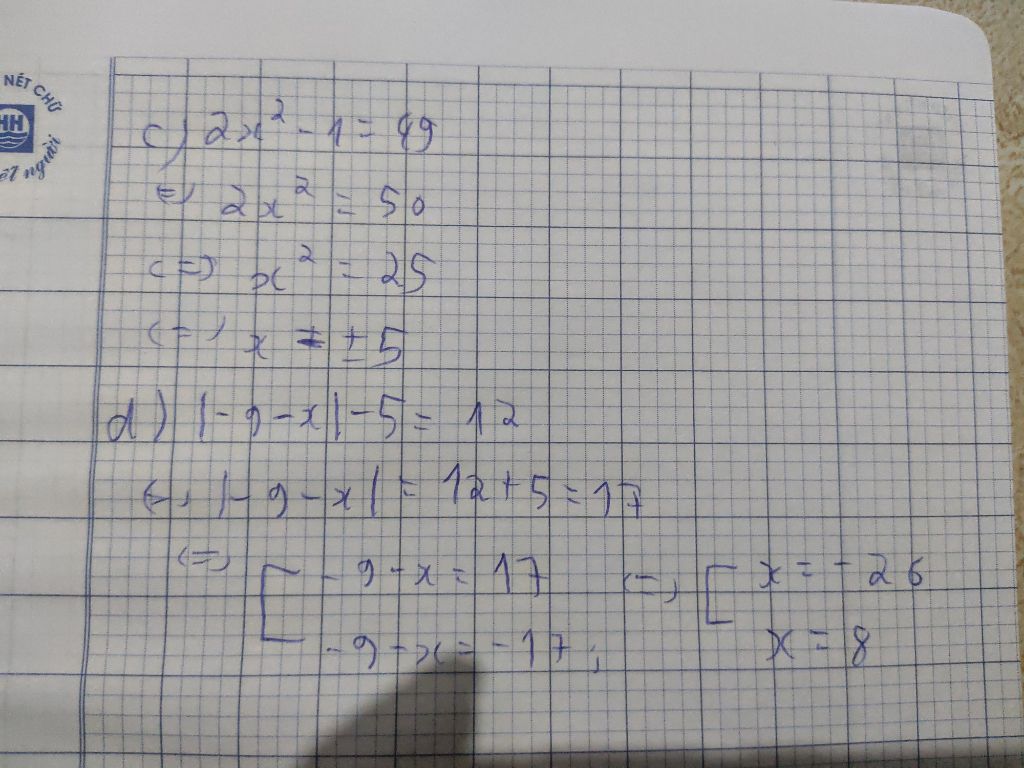 NÉT CHỮ
HH
ết người
c) 2x² - 1 = 49
<=> 2x² = 50
<=> x² = 25
<=> x = ±5
d) |-9-x| - 5 = 12
<=> |-9-x| = 12 + 5 = 17
<=> [ -9-x = 17 <=> [ x = -26
-9-x = -17; x = 8